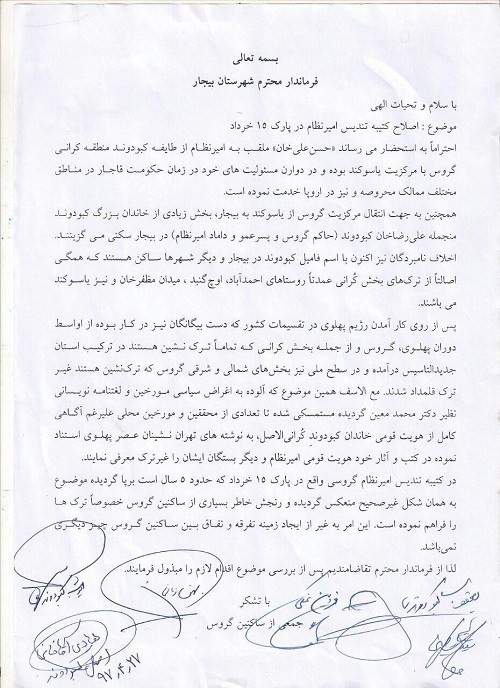 بسمه تعالی
فرماندار محترم شهرستان بیجار
با سلام و تحیات الهی
موضوع : اصلاح کتیبه تندیس امیرنظام در پارک ۱۵ خرداد
احتراماً به استحضار می رساند «حسن‌علی‌خان» ملقب به امیرنظام از طایفه کبودوند منطقه کرانی
گروس با مرکزیت یاسوکند بوده و در دوارن مسئولیت های خود در زمان حکومت قاجار در مناطق
مختلف ممالک محروصه و نیز در اروپا خدمت نموده است.
همچنین به جهت انتقال مرکزیت گروس از یاسوکند به بیجار، بخش زیادی از خاندان بزرگ کبودوند
منجمله علی‌رضاخان کبودوند (حاکم گروس و پسرعمو و داماد امیرنظام) در بیجار سکنی می گزینند.
اخلاف نامبردگان نیز اکنون با اسم فامیل کبودوند در بیجار و دیگر شهرها ساکن هستند که همگی
اصالتاً از ترک‌های بخش کُرانی عمدتاً روستاهای احمدآباد، اوچ‌گنبد ، میدان مظفرخان و نیز یاسوکند
می باشند.
پس از روی کار آمدن رژیم پهلوی در تقسیمات کشور که دست بیگانگان نیز در کار بوده از اواسط
دوران پهلوی، گروس و از جمله بخش کرانی که تماماً ترک نشین هستند در ترکیب استان
جدیدالتاسیس درآمده و در سطح ملی نیز بخش‌های شمالی و شرقی گروس که ترک‌نشین هستند غیر
ترک قلمداد شدند. مع الاسف همین موضوع که آلوده به اغراض سیاسی مورخین و لغتنامه نویسانی
نظیر دکتر محمد معین گردیده مستمسکی شده تا تعدادی از محققین و مورخین محلی علیرغم آگاهی
کامل از هویت قومی خاندان کبودوندِ کُرانی‌الاصل، به نوشته های تهران نشینان عصر پهلوی استناد
نموده در کتب و آثار خود هویت قومی امیرنظام و دیگر بستگان ایشان را غیرترک معرفی نمایند.
در کتیبه تندیس امیرنظام گروسی واقع در پارک ۱۵ خرداد که حدود ۵ سال است برپا گردیده موضوع
به همان شکل غیرصحیح منعکس گردیده و رنجش خاطر بسیاری از ساکنین گروس خصوصاً ترک ها
را فراهم نموده است. این امر به غیر از ایجاد زمینه تفرقه و نفاق بین ساکنین گروس چیز دیگری
نمی‌باشد.
لذا از فرماندار محترم تقاضامندیم پس از بررسی موضوع اقدام لازم را مبذول فرمایند.
با تشکر
جمعی از ساکنین گروس
۹۷,۴,۲۷